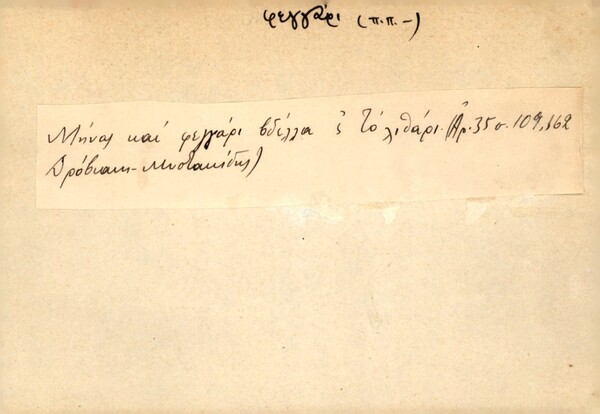 φεγγάρι (π.π. –)
Μήνας καί φεγγάρι βδέλλα ς τό λιθάρι. (Ἀρ. 35 σ. 109, 162
Δρόβιανη - Μυστακίδης)